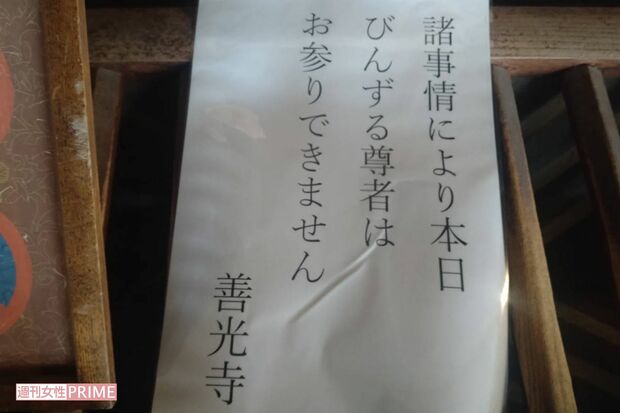 諸事情により本日
びんずる尊者は
お参りできません
善光寺
週刊女性PRIME